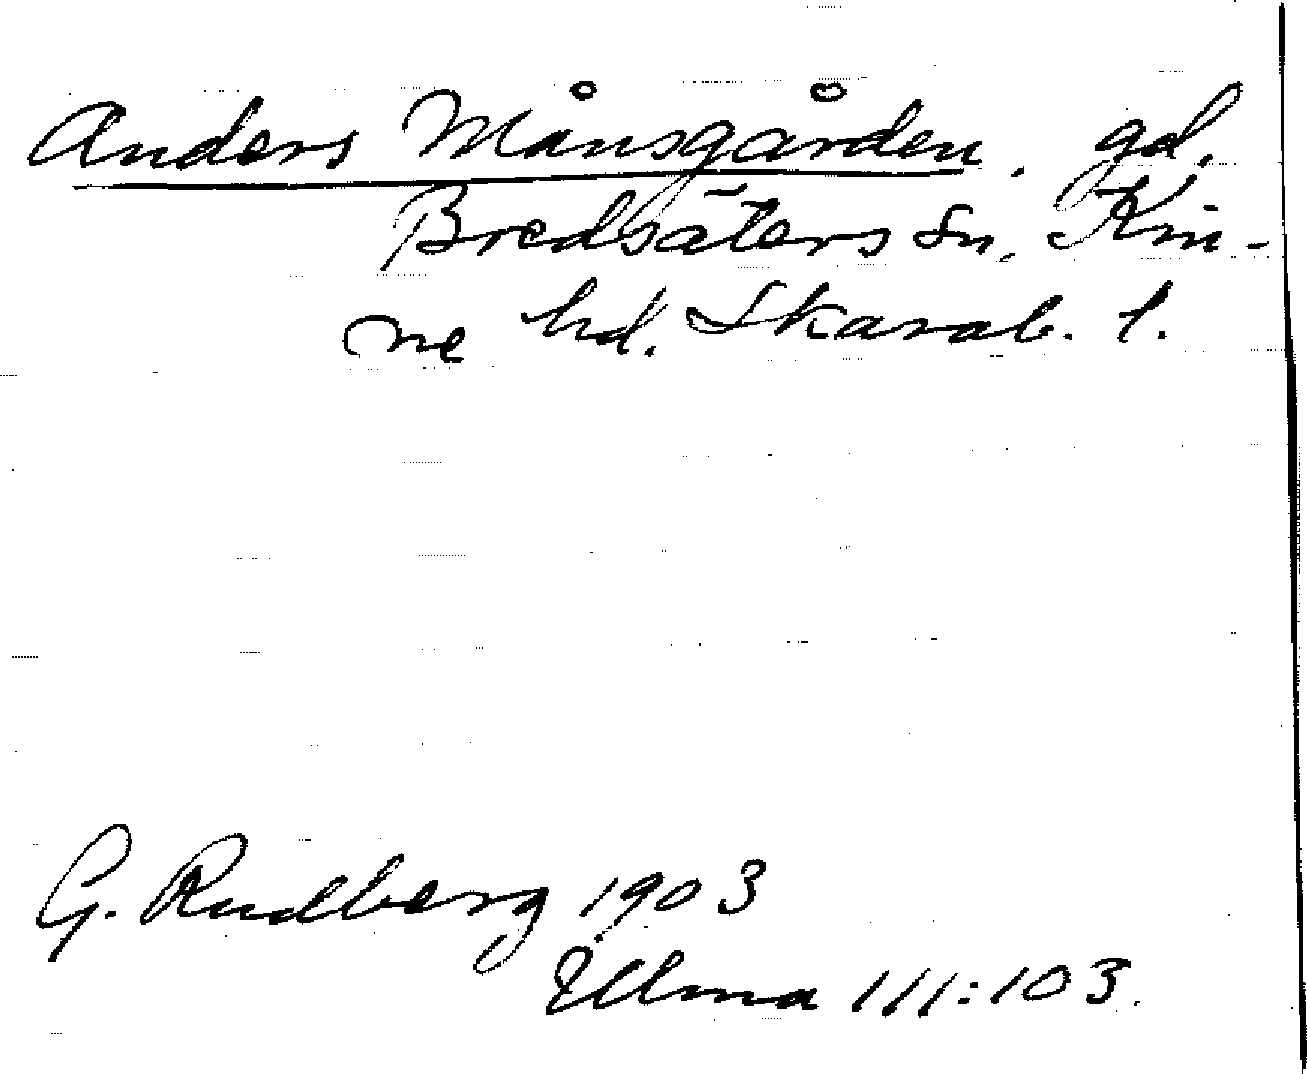 Anders Månsgården. gd.
Bredsäters sn, Kin-
ne hd. Skarab. l.
G. Rudberg 1903
Ulma 111:103.